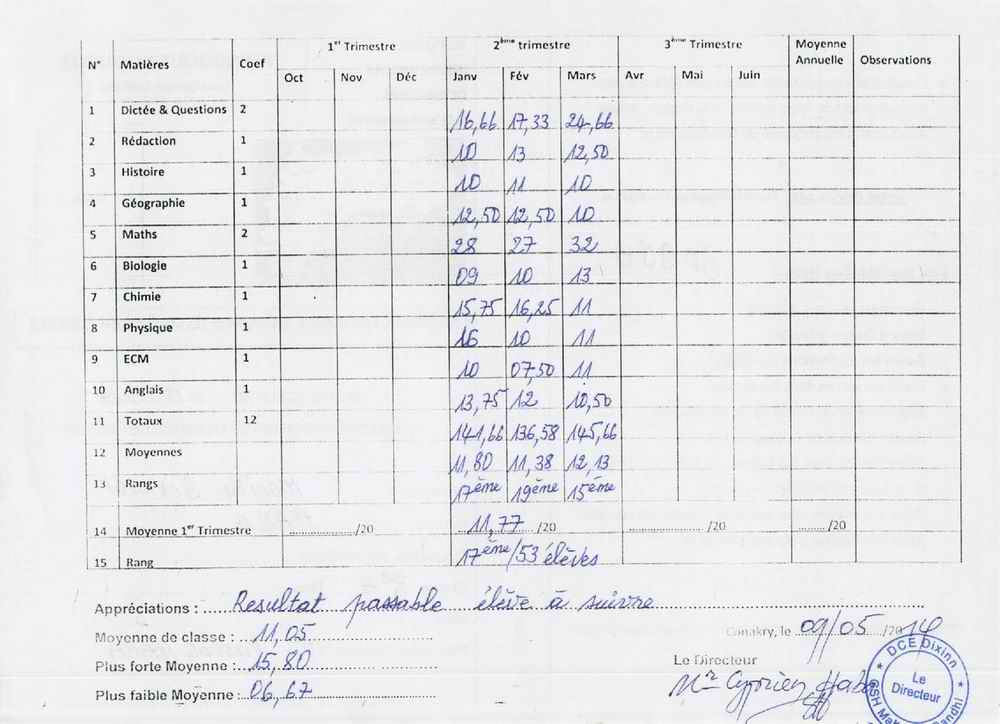 N° Matières Coef 1er Trimestre 2ème trimestre 3ème Trimestre Moyenne Annuelle Observations
Oct Nov Déc Janv Fév Mars Avr Mai Juin
1 Dictée & Questions 2 16,66 17,33 24,66
2 Rédaction 1 10 13 12,50
3 Histoire 1 10 11 10
4 Géographie 1 12,50 12,50 10
5 Maths 2 28 27 32
6 Biologie 1 09 10 13
7 Chimie 1 15,75 16,25 11
8 Physique 1 16 10 11
9 ECM 1 10 07,50 11
10 Anglais 1 13,75 12 10,50
11 Totaux 12 141,66 136,58 145,66
12 Moyennes 11,80 11,38 12,13
13 Rangs 17ème 19ème 15ème
14 Moyenne 1er Trimestre ............/20 11,77 /20 ............/20 ........./20
15 Rang 17ème/53 élèves
Appréciations : Resultat passable élève à suivre
Moyenne de classe : 11,05
Conakry, le 09/05/2014
Plus forte Moyenne : 15,80
Le Directeur
Plus faible Moyenne : 06,67
Mr Cyprien
DCE Dixinn
Le Directeur
GSH